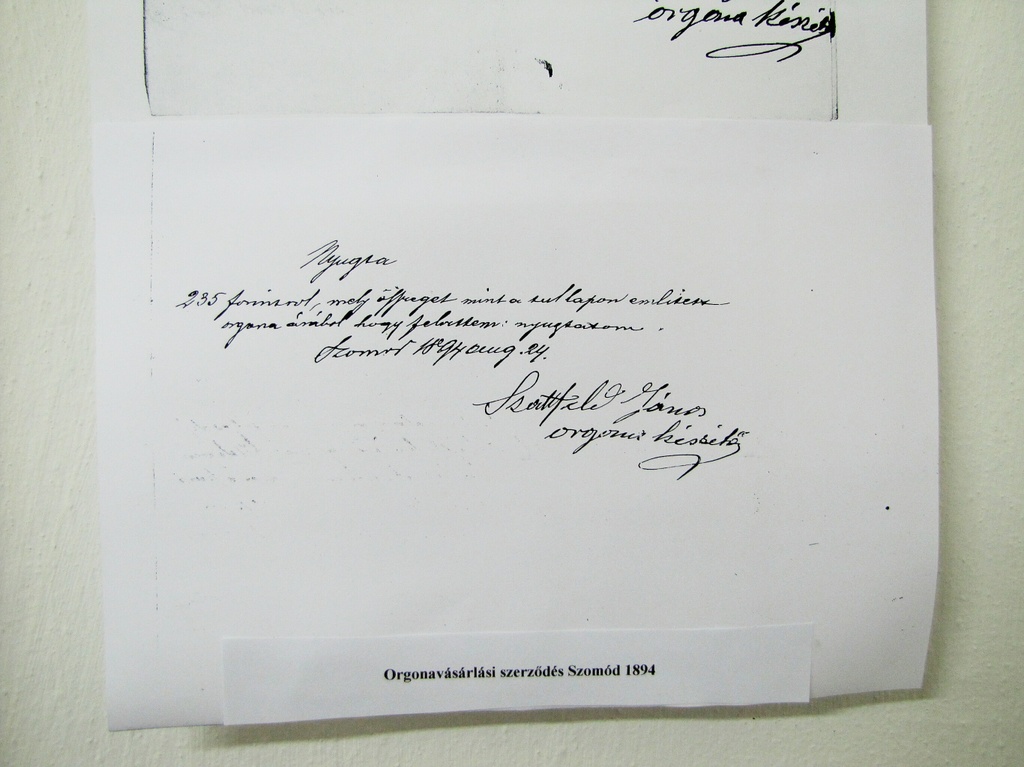 orgona készítő
Nyugta
235 forintrol, mely összeget mint a tullapon emlitett
orgona árából hogy felvettem: nyugtatom.
Szomód 1894 aug. 24.
János
orgona készítő
Orgonavásárlási szerződés Szomód 1894